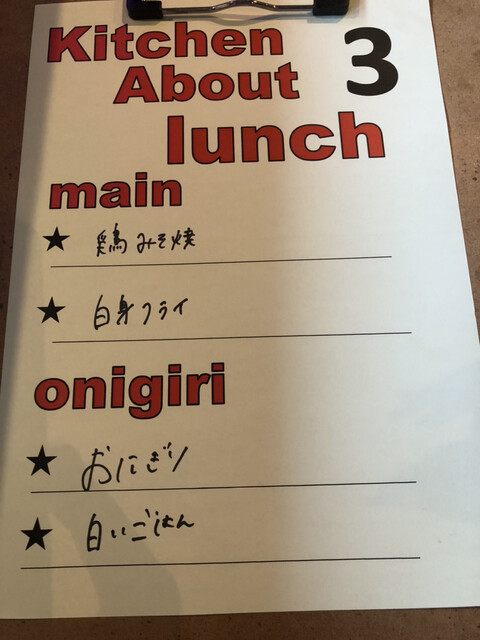 Kitchen
About 3
lunch
main
★ 鶏みそ焼
★ 白身フライ
onigiri
★ おにぎり
★ 白いごはん